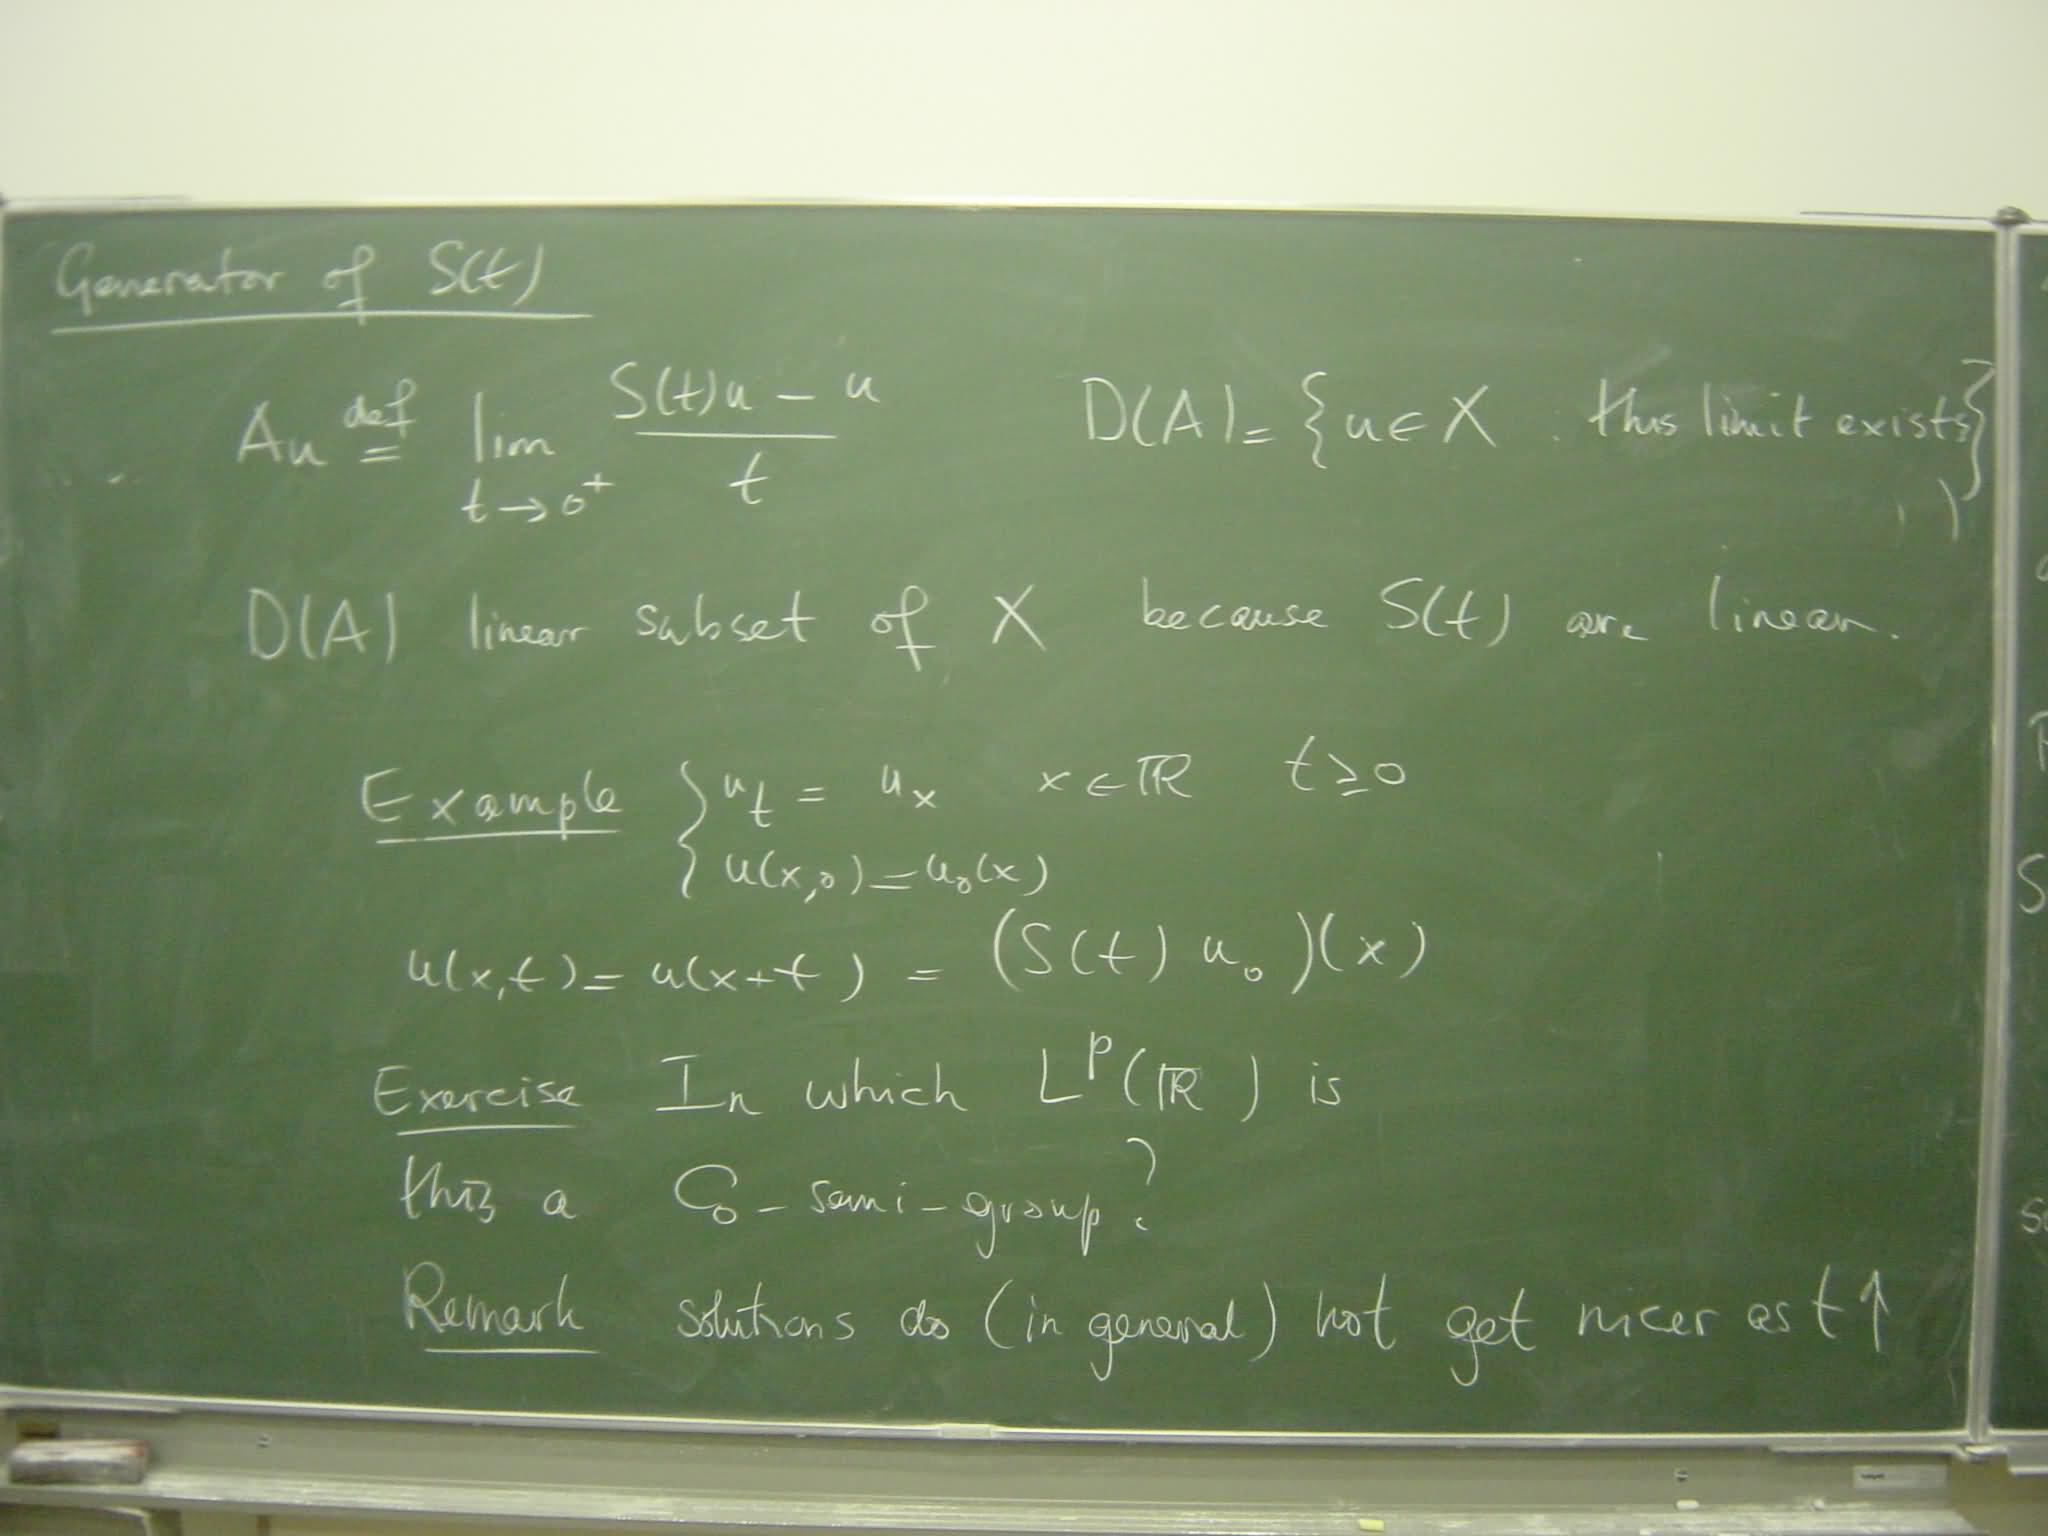 Generator of S(t)
Au def= lim t→0⁺ (S(t)u − u)/t D(A) = {u ∈ X : this limit exists}
D(A) linear subset of X because S(t) are linear.
Example { u_t = u_x x ∈ ℝ t ≥ 0
u(x,0) = u₀(x)
u(x,t) = u(x+t) = (S(t) u₀)(x)
Exercise In which L^p(ℝ) is
this a C₀-semi-group?
Remark solutions do (in general) not get nicer as t ↑